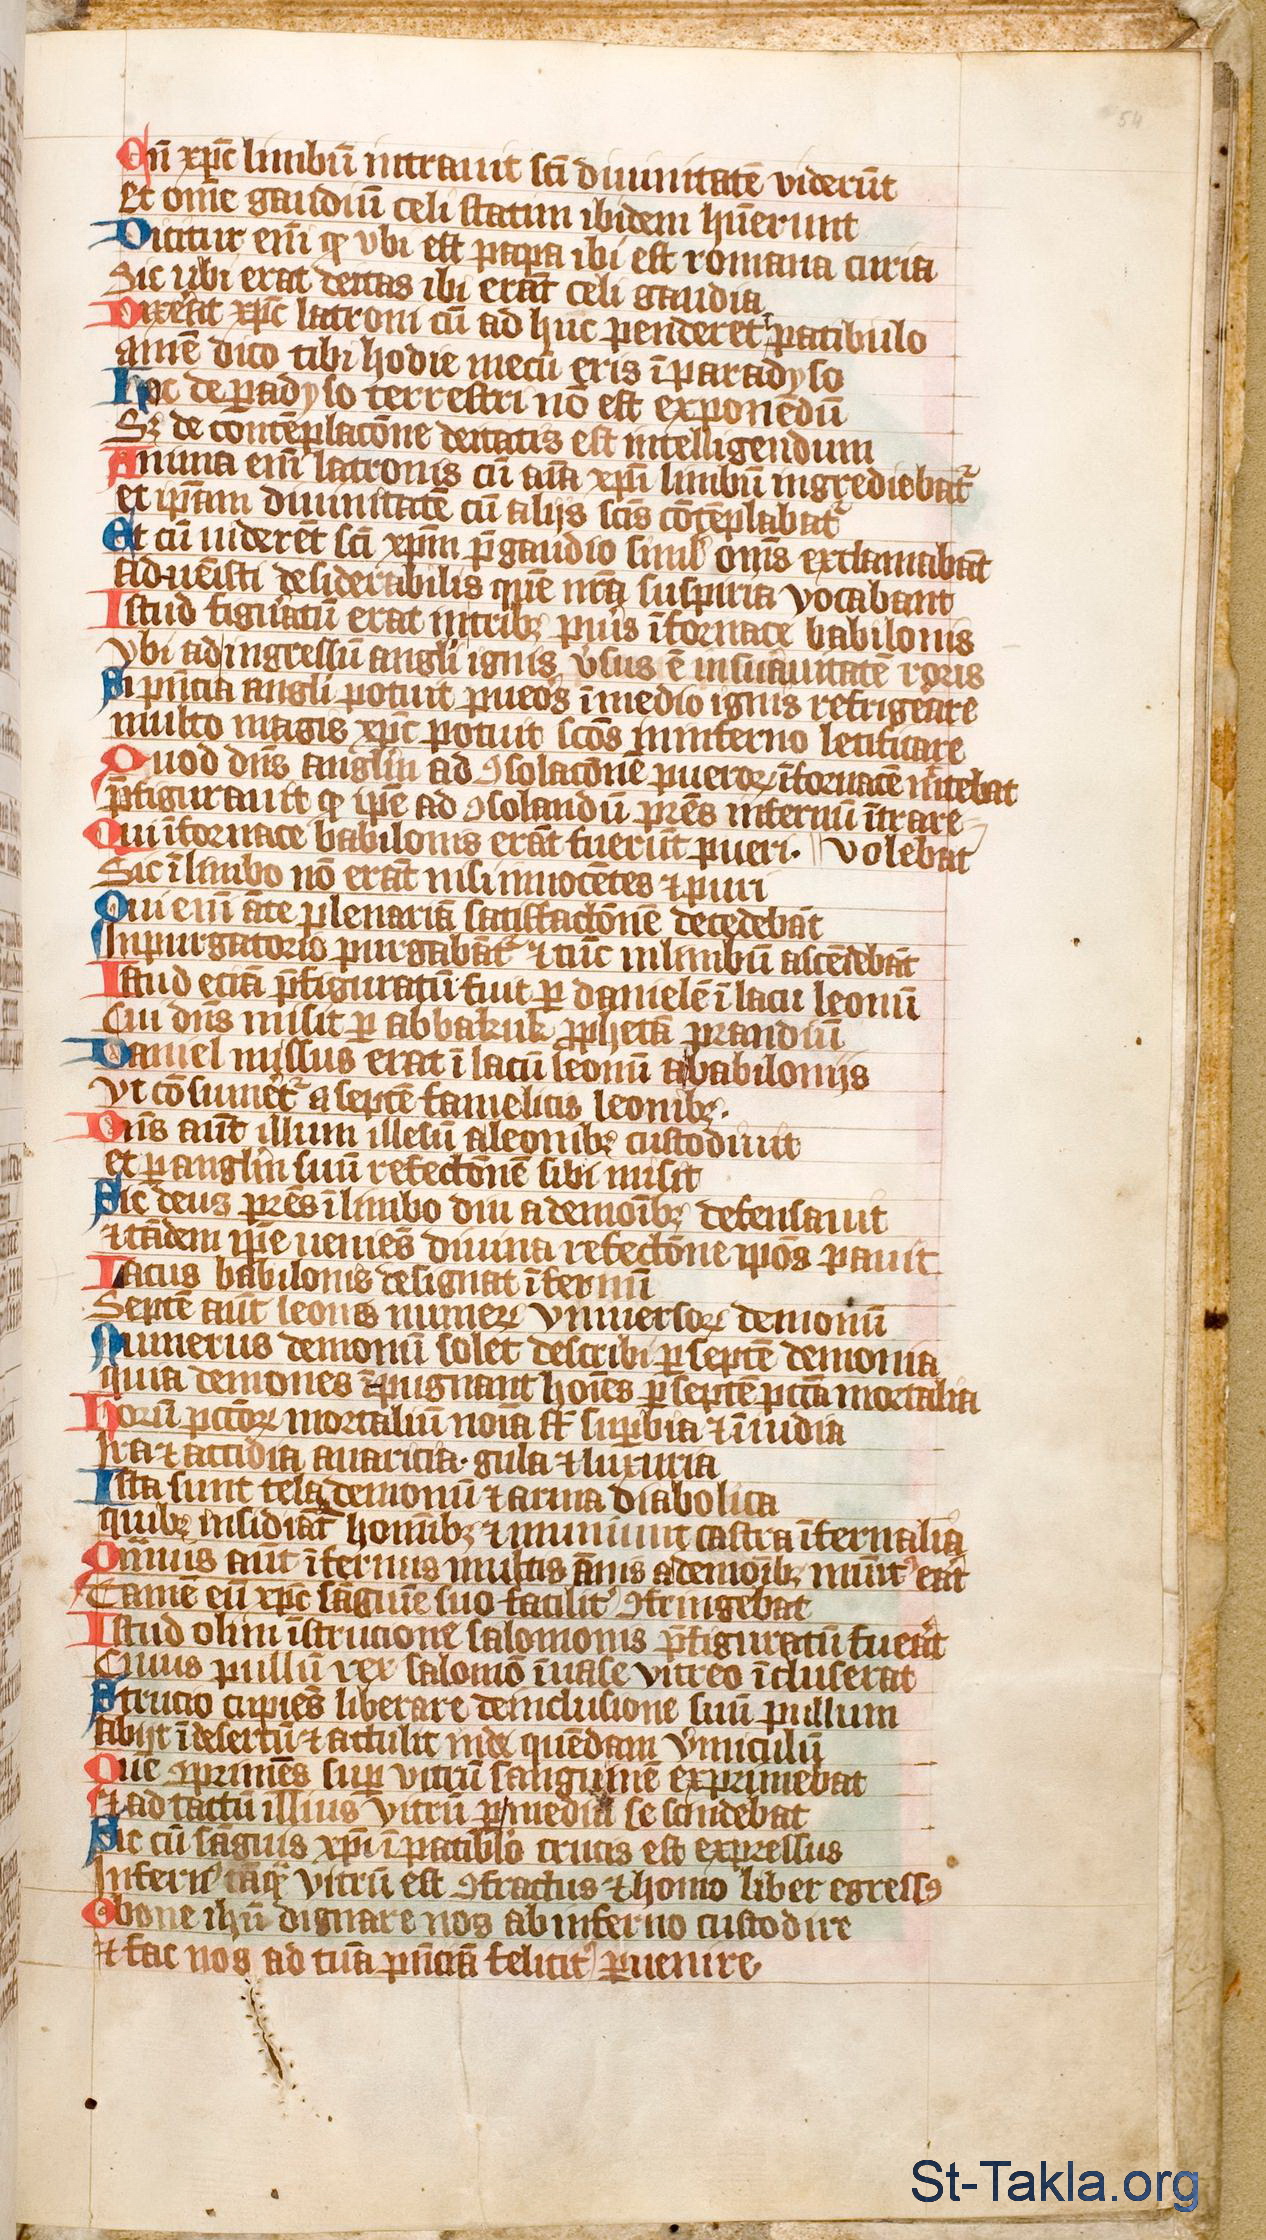 Cū xp̄c limbū intrauit sc̄i diuinitatē viderūt
et om̄e gaudiū celi statim ibidem hūerunt
Dicitur em̄ ꝙ vbi est papa ibi est romana curia
Sic ubi erat deitas ibi erāt celi gaudia
Dixerat xp̄c latroni cū ad huc penderet patibulo
amē dico tibi hodie mecū eris ī paradyso
Hoc de ꝑadyso terrestri nō est exponēdū
Sꝫ de contēplacōne deitatis est intelligendum
Anima em̄ latronis cū aīa xp̄i limbū ingrediebat᷑
et ip̄am diuinitatē cū alijs sc̄is cōtēplabat᷑
Et cū uiderēt sc̄i xp̄m p̄ gaudio simul om̄s exclamabāt
aduēisti desiderabilis quē nr̄a suspiria vocabant
Istud figuratū erat in tribꝫ pueris ī fornace babilonis
Vbi ad ingressū angli ignis v̓sus ē in suauitatē roris
Si pn̄cia angli potuit pueros ī medio ignis refrigerare
multo magis xp̄c potuit sc̄os in inferno letificare
Quod dn̄s anglm̄ ad ꝯsolacōnē pueroꝝ ī fornacē mittebat
p̄figurauit ꝙ ip̄e ad ꝯsolandū pr̄es infernū ītrare
Qui ī fornace babilonis erāt fuerūt pueri · volebat
Sic ī limbo nō erāt nisi innocētes ⁊ puri
Qui em̄ āte plenariā satisfactōnē decedebāt
In purgatorio purgabāt᷑ ⁊ tūc in limbū ascēdebāt
Istud eciā p̄figuratū fuit ꝑ danielē ī lacu leonū
Cui dn̄s misit ꝑ abbakuk ꝓphetā prandiū
Daniel missus erat ī lacū leonū a babilonijs
Vt cōsumeret᷑ a septē famelicis leonibꝫ ·
Dn̄s aūt illum illesū a leonibꝫ custodiuit
et ꝑ anglm̄ suū refectōnē sibi misit
Sic deus pr̄es ī limbo diu a demoībꝫ defensauit
⁊ tādem ip̄e ueniēs diuina refectōne ip̄os pauit
Lacus babilonis designat īfernū
Septē aūt leones numerꝫ vniuersoꝝ demonū
Numerus demonū solet describi ꝑ septē demonia
quia demones īpugnant hoīes ꝑ septē pctā mortalia
Horū pctōꝝ mortaliū noīa st̄ suꝑbia ⁊ īuidia
Ira ⁊ accidia auaricia · gula ⁊ luxuria
Ista sunt tela demonū ⁊ arma diabolica
quibꝫ insidiāt᷑ hominibꝫ ⁊ muniunt castra īfernalia
Quāuis aūt īfernus multis ānis a demoībꝫ munitꝰ erat
Tamē eū xp̄c sāguīe suo facilitꝰ ꝯfringebat
Istud olim ī strucione salomonis p̄figuratū fuerat
Cuius pullū rex salomō ī uase vitreo īcluserat
Strucio cupiēs liberare de inclusione suū pullum
abijt ī desertū ⁊ attulit inde quēdam v̓miculū
Quē ꝯprimēs suꝑ vitrū sanguinē exprimebat
Et ad tactū illius vitrū ꝑ media se scindebat
Sic cū sāguis xp̄i ī patibulo crucis est expressus
Infernꝰ tāqͣ vitrū est ꝯfractus ⁊ homo liber egressꝰ
O bone ihū dignare nos ab inferno custodire
Et fac nos ad tuā pn̄ciā felicitꝰ ꝑuenire
54
St-Takla.org